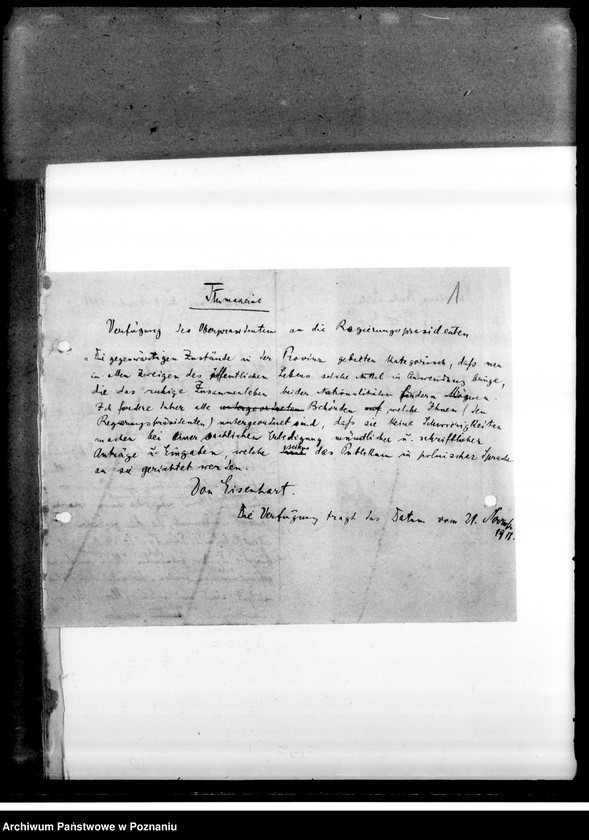 Tłumaczenie
1
Verfügung des Oberpräsidenten an die Regierungspräsidenten
"Die gegenwärtigen Zustände in der Provinz gebieten kategorisch, dafs man
in allen Zweigen des öffentlichen Lebens solche Mittel in Anwendung bringe,
die das ruhige Zusammenleben beider Nationalitäten fördern mögen.
Ich fordre daher alle untergeordneten Behörden auf welche Ihnen (den
Regierungspräsidenten) untergeordnet sind, dafs sie keine Schwierigkeiten
machen bei einer sachlichen Erledigung mündlicher u. schriftlicher
Anträge u. Eingaben, welche seitens des Publikum in polnischer Sprache
an sie gerichtet werden.
Von Eisenhart.
Die Verfügung tragt das Datum vom 21. Novemb.
1918.
Archiwum Państwowe w Poznaniu